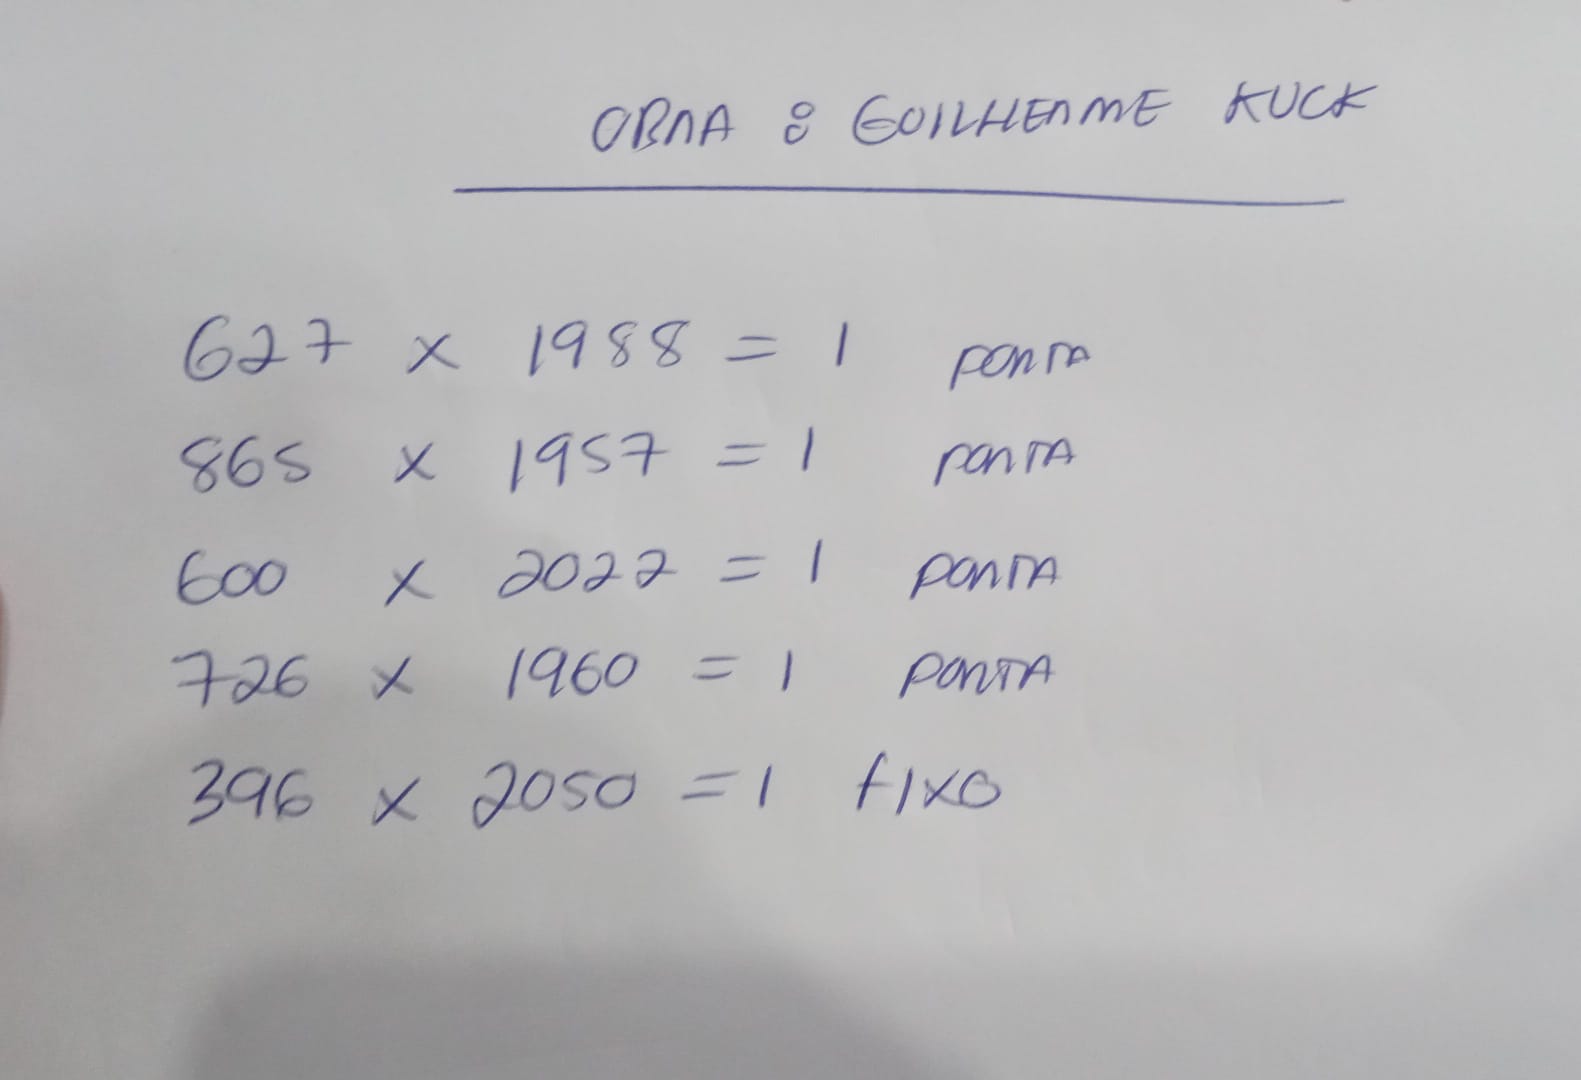 OBRA : GUILHERME KUCK
627 x 1988 = 1 PORTA
865 x 1957 = 1 PORTA
600 x 2022 = 1 PORTA
726 x 1960 = 1 PORTA
396 x 2050 = 1 FIXO